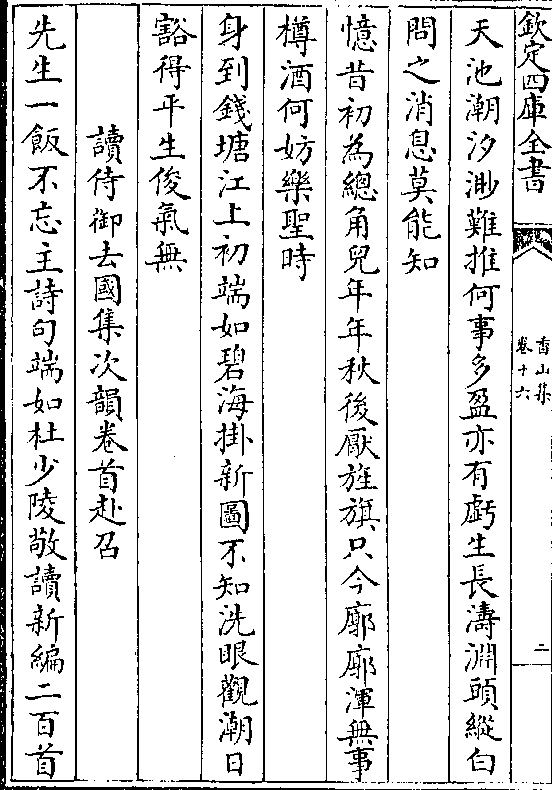 欽定四庫全書
香山集
卷十六
二
天池潮汐渺難推何事多盈亦有虧生長濤淵頭縱白
問之消息莫能知
憶昔初為總角兒年年秋後厭旌旗只今廓廓渾無事
樽酒何妨樂聖時
身到錢塘江上初端如碧海掛新圖不知洗眼觀潮日
豁得平生俊氣無
讀侍御去國集次韻卷首赴召
先生一飯不忘主詩句端如杜少陵敬讀新編二百首